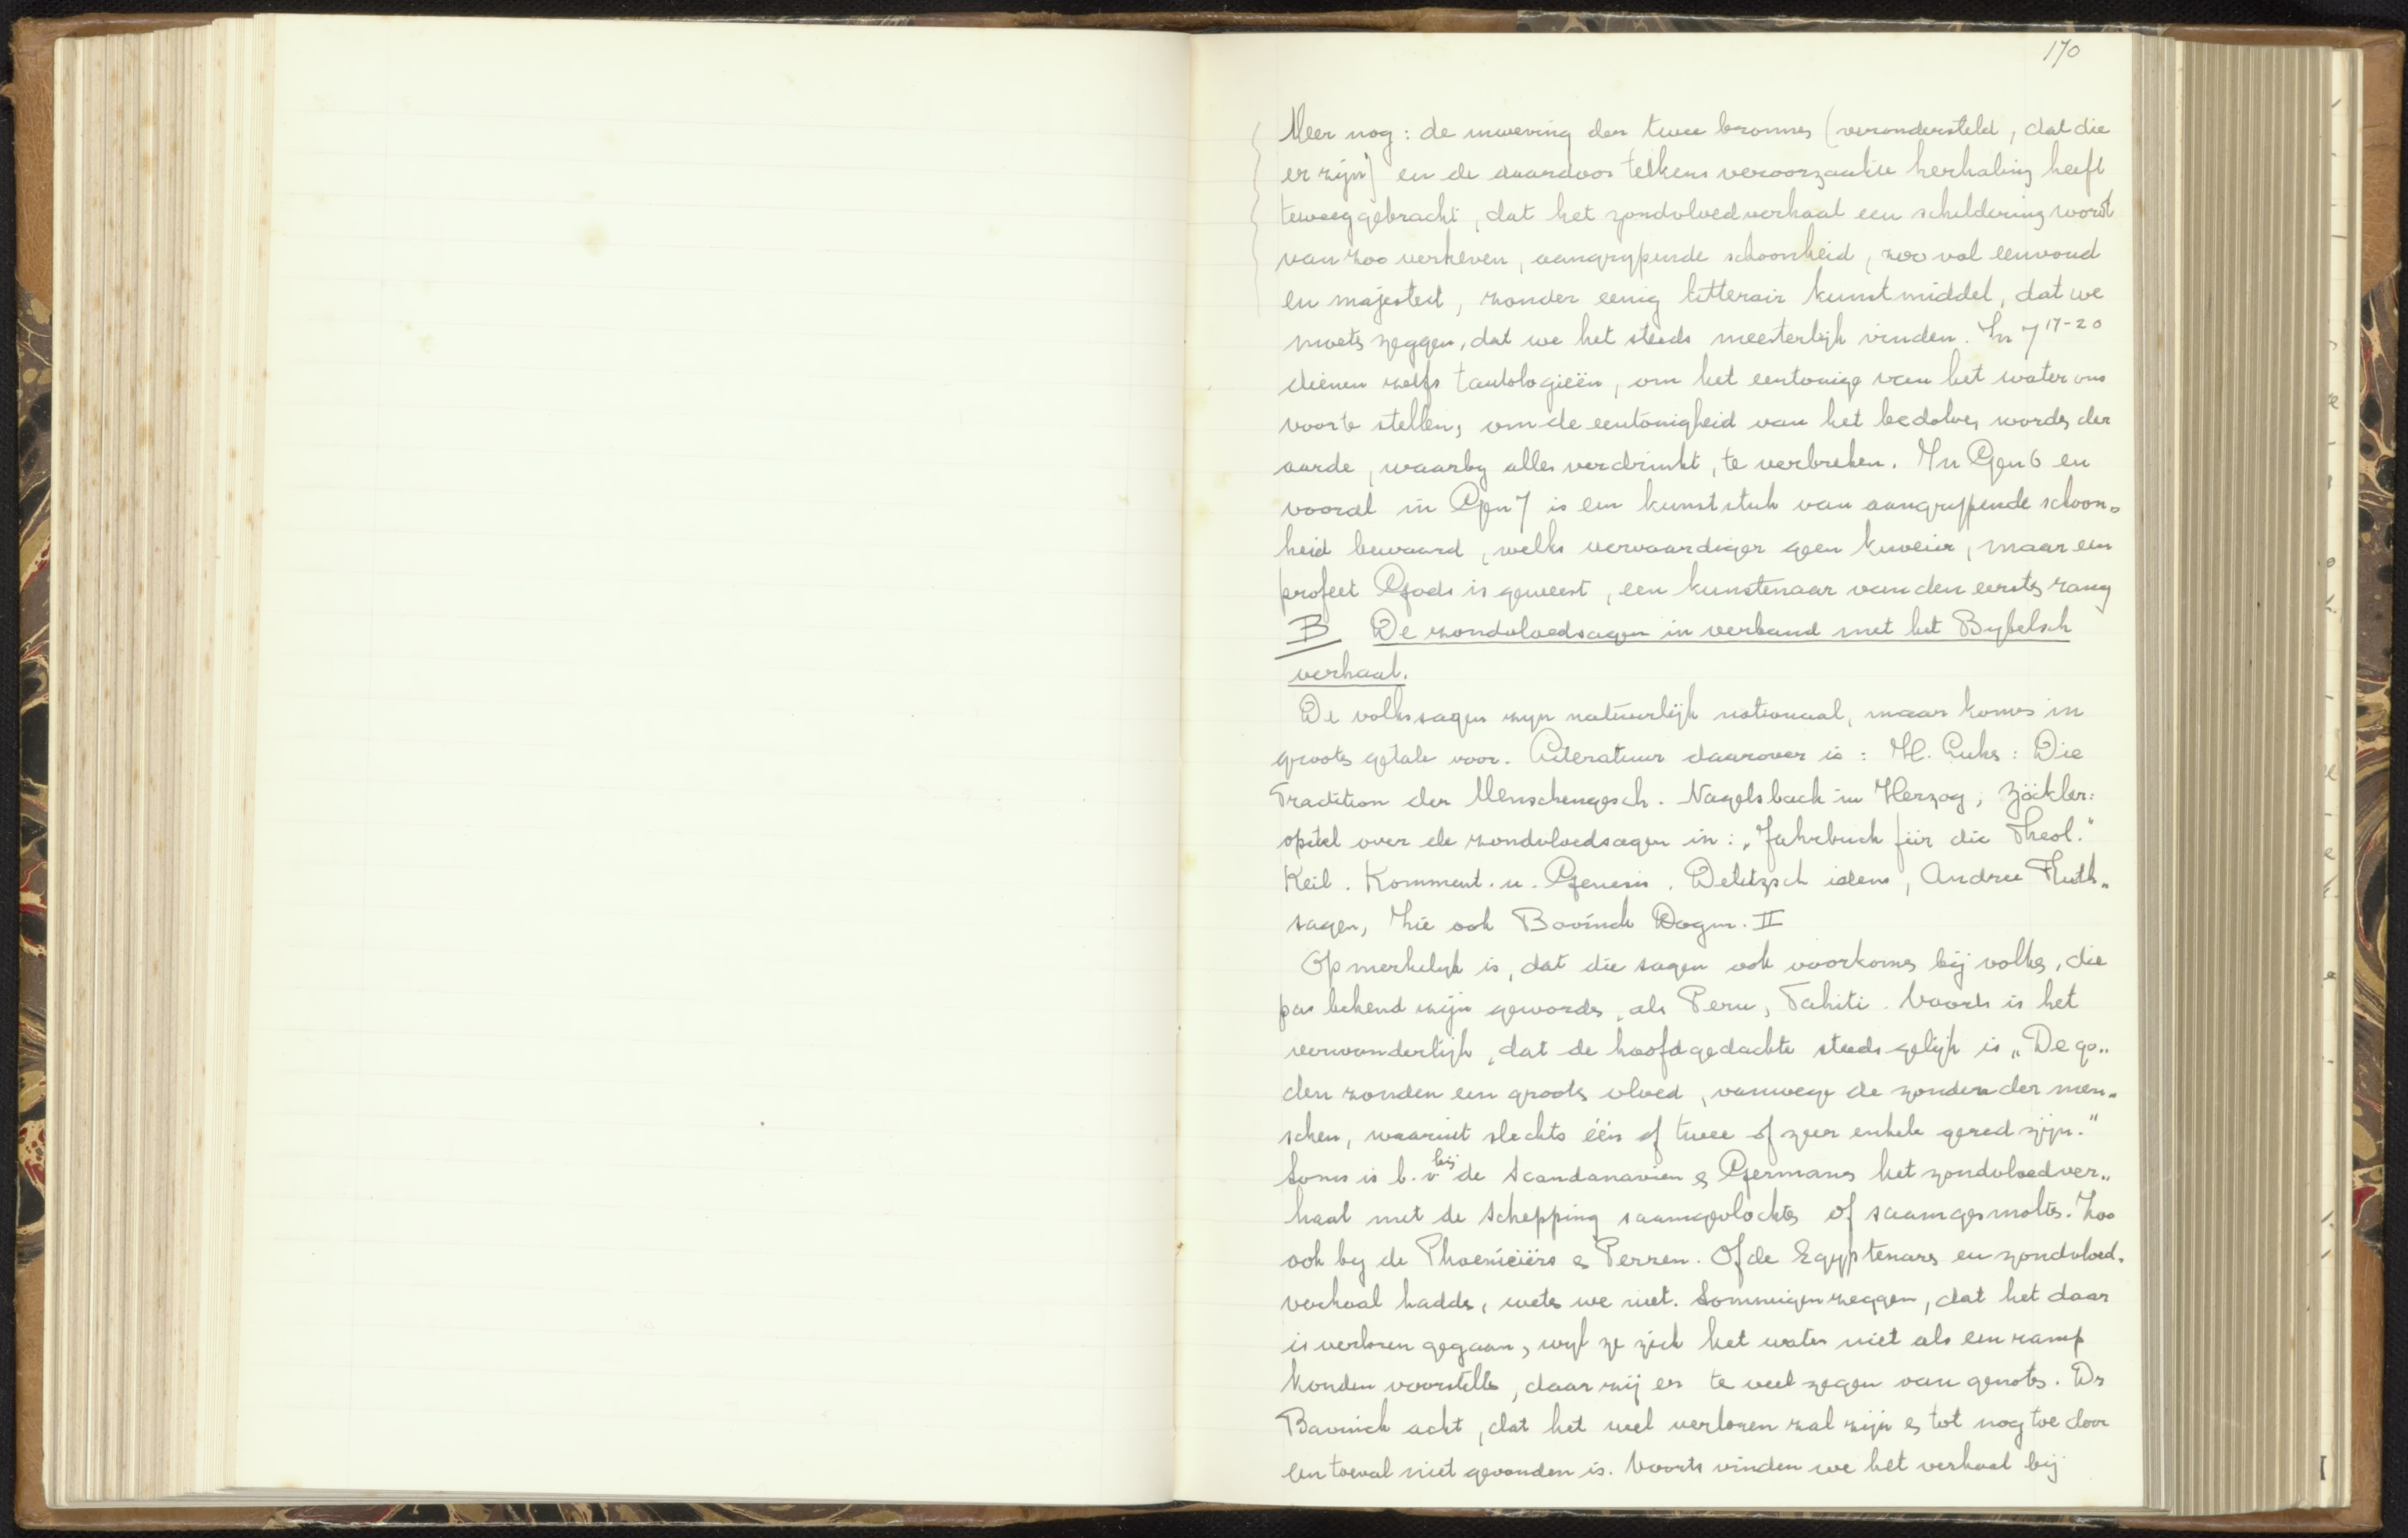 170
Meer nog: de inweving der twee bronnen (verondersteld, dat die
er zijn) en de daardoor telkens veroorzaakte herhaling heeft
teweeggebracht, dat het zondvloedverhaal een schildering wordt
van zoo verheven, aangrypende schoonheid, zoo vol eenvoud
en majesteit, zonder eenig litterair kunstmiddel, dat we
moets zeggen, dat we het steeds meesterlijk vinden. In 7 17-20
dienen zelfs tautologieën, om het eentonige van het water ons
voor te stellen, om de eentonigheid van het bedolven worden der
aarde, waarby alles verdrinkt, te verbreken. In Gen 6 en
vooral in Gen 7 is een kunststuk van aangrypende schoon-
heid bewaard, welks vervaardiger geen knoeier, maar een
profeet Gods is geweest, een kunstenaar van den eersten rang
B De zondvloedsagen in verband met het Bybelsch
verhaal.
De volkssagen zijn natuurlijk nationaal, maar komen in
groote getale voor. Literatuur daarover is: H. Lüks: Die
Tradition der Menschengesch. Nagelsbach in Herzog, Zöckler:
opstel over de zondvloedsagen in: "Jahrbuch für die Theol."
Keil. Komment. u. Genesis. Delitzsch idem, Andree Fluth-
sagen, Zie ook Bavinck Dogm. II
Opmerkelyk is, dat die sagen ook voorkomen bij volken, die
pas bekend zijn geworden, als Peru, Tahiti. Voorts is het
verwonderlijk, dat de hoofdgedachte steeds gelijk is "De go-
den zonden een groote vloed, vanwege de zonden der men-
schen, waaruit slechts één of twee of zeer enkele gered zijn."
Soms is b.v bij de Scandanavien & Germanen het zondvloedver-
haal met de Schepping saamgevlochten of saamgesmolten. Zoo
ook by de Phoeniciërs & Perzen. Of de Egyptenars en zondvloed-
verhaal hadden, weten we niet. Sommigen zeggen, dat het daar
is verloren gegaan, wyl ze zich het water niet als een ramp
konden voorstellen, daar zij er te veel zegen van genoten. Dr
Bavinck acht, dat het wel verloren zal zijn & tot nog toe door
een toeval niet gevonden is. Voorts vinden we het verhaal bij